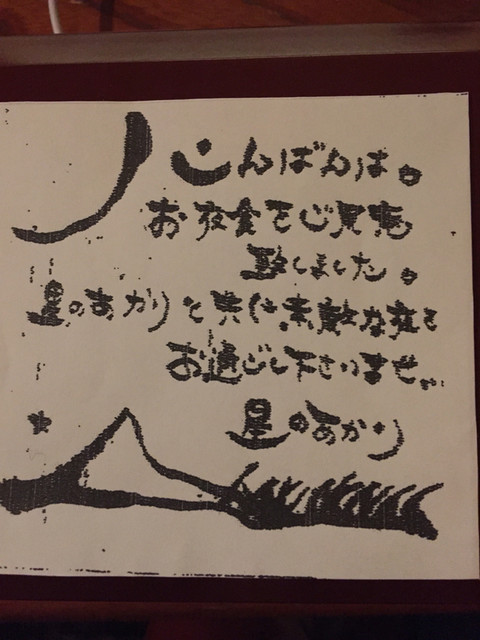 こんばんは。
お夜食をご用意
致しました。
星のあかりと共に素敵な夜を
お過ごし下さいませ。
星のあかり